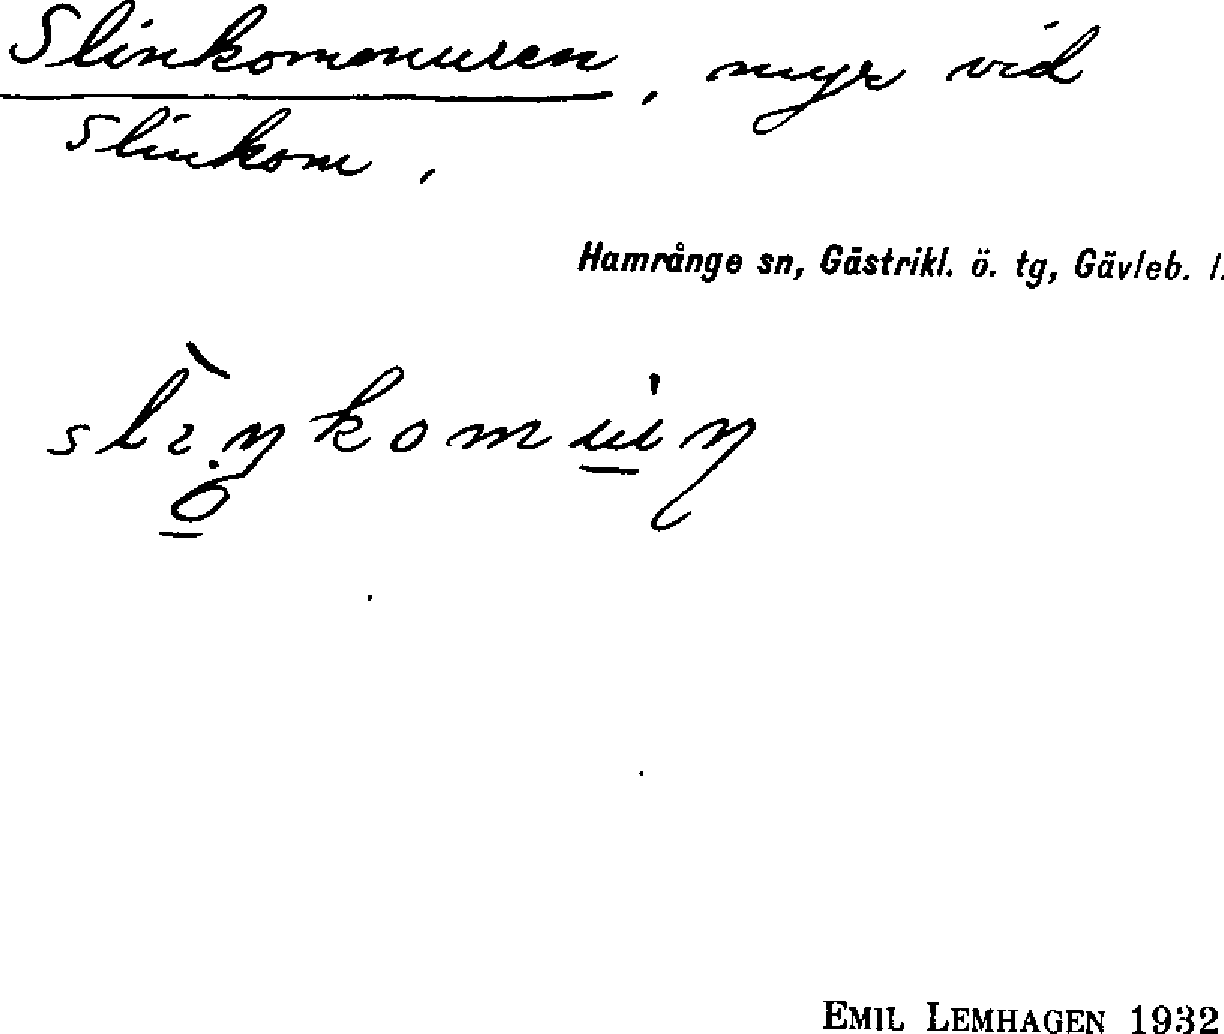 Slinkommuren, myr vid
Slinkom,
Hamrånge sn, Gästrikl. ö. tg, Gävleb. l.
EMIL LEMHAGEN 1932